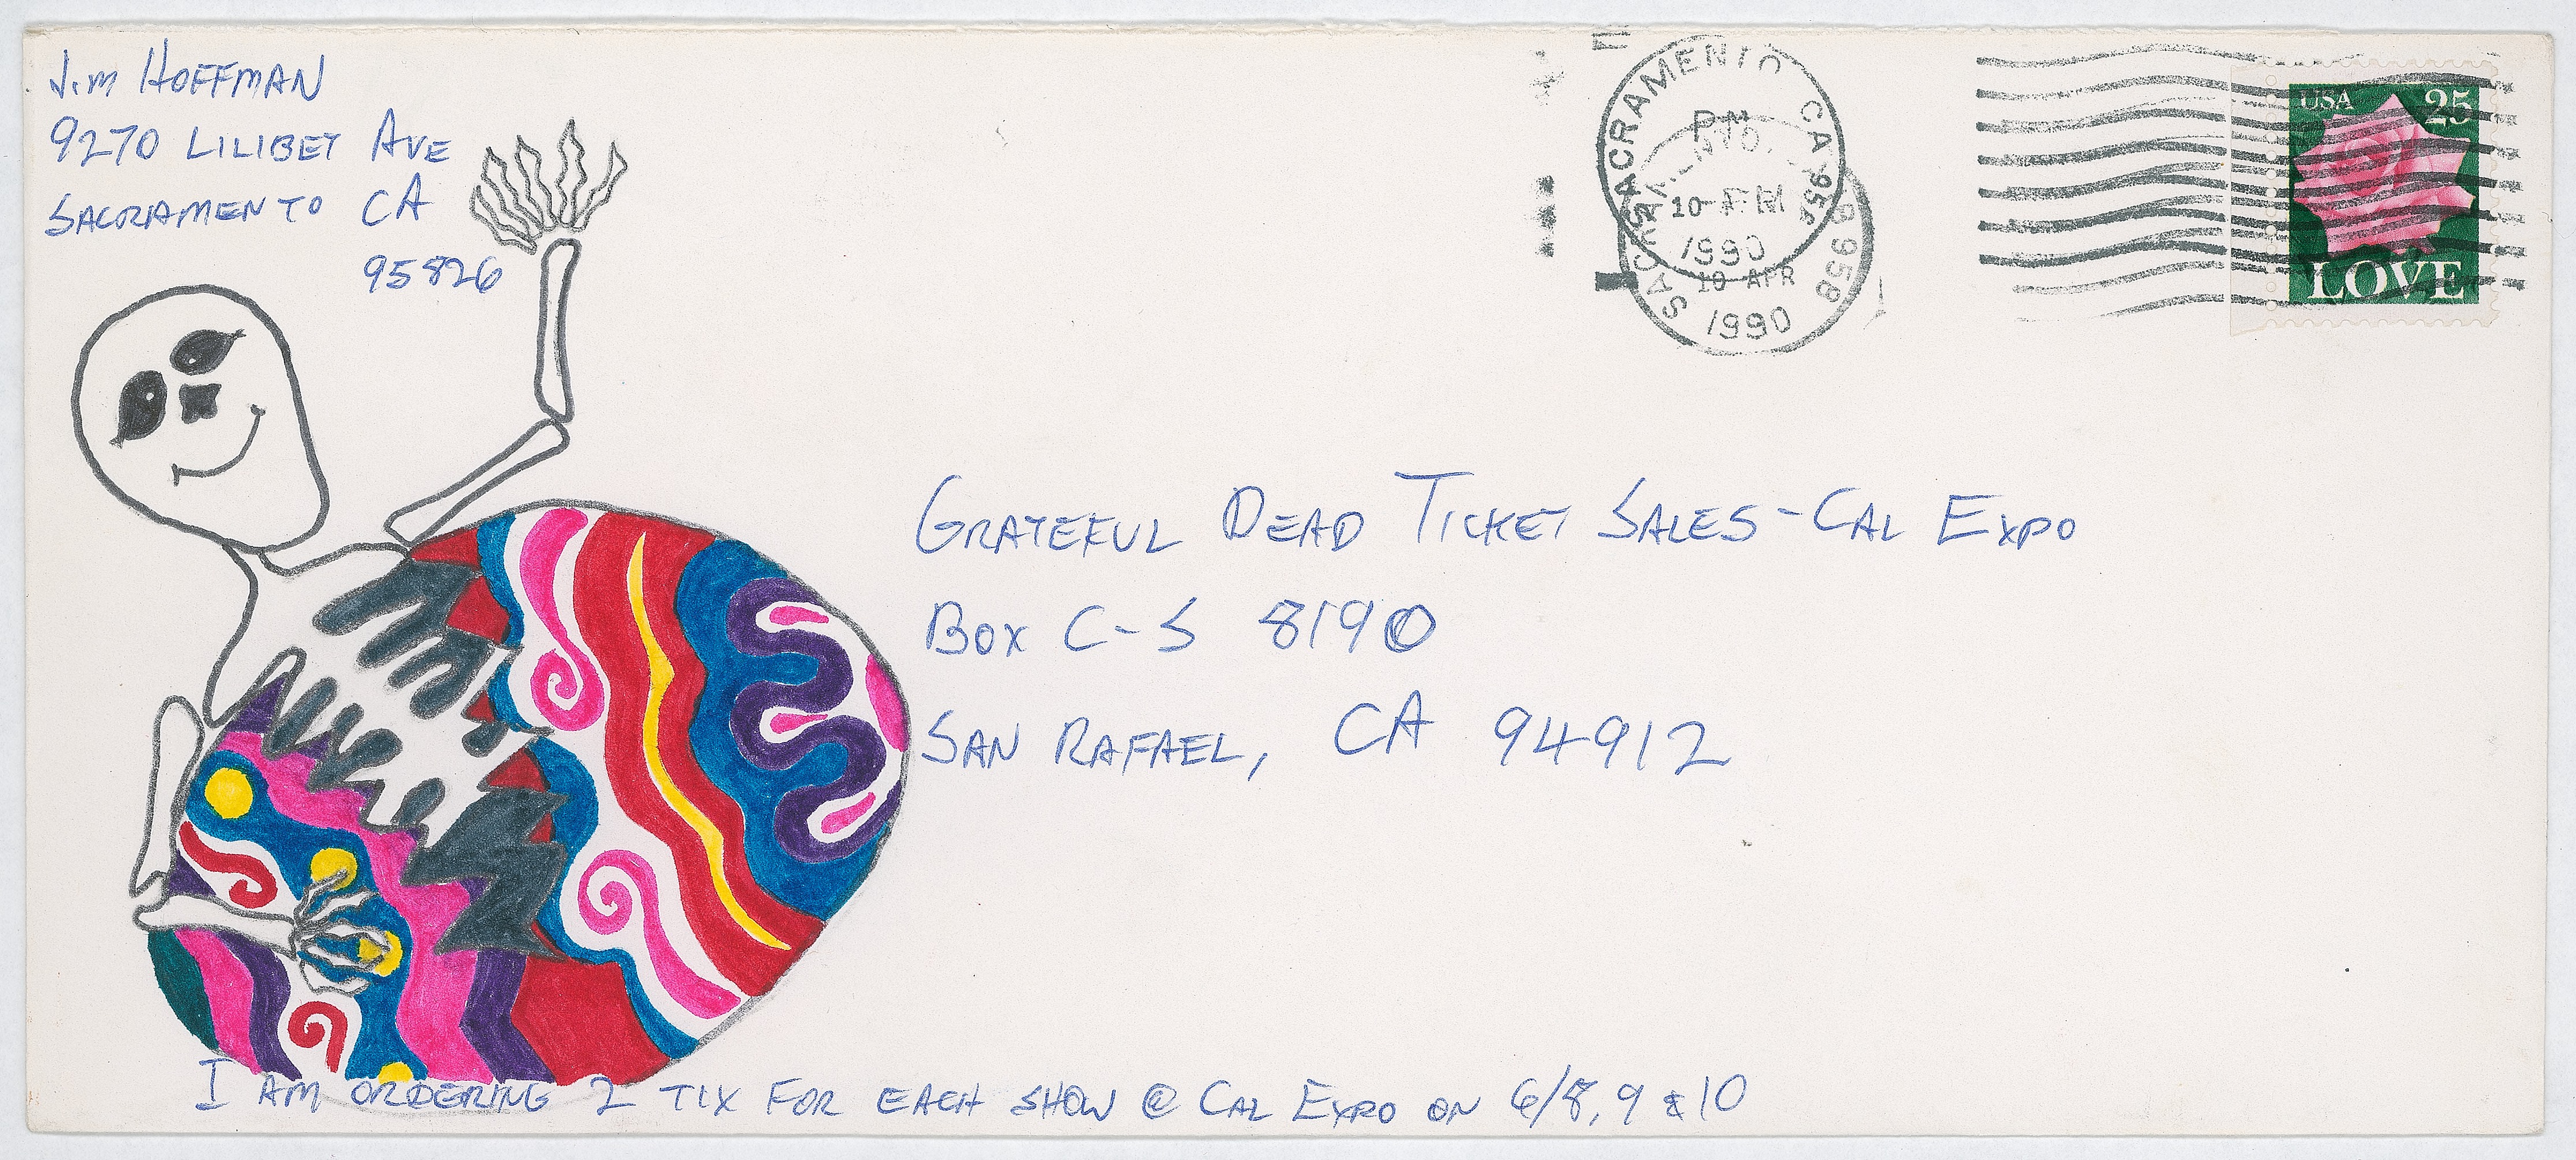 Jim Hoffman
9270 Lilibet Ave
Sacramento CA
95826
SACRAMENTO CA 958
PM
10 APR
1990
SACRAMENTO CA 958
PM
10 APR
1990
USA 25
LOVE
Grateful Dead Ticket Sales-Cal Expo
Box C-S 8190
San Rafael, CA 94912
I am ordering 2 tix for each show @ Cal Expo on 6/8, 9 & 10